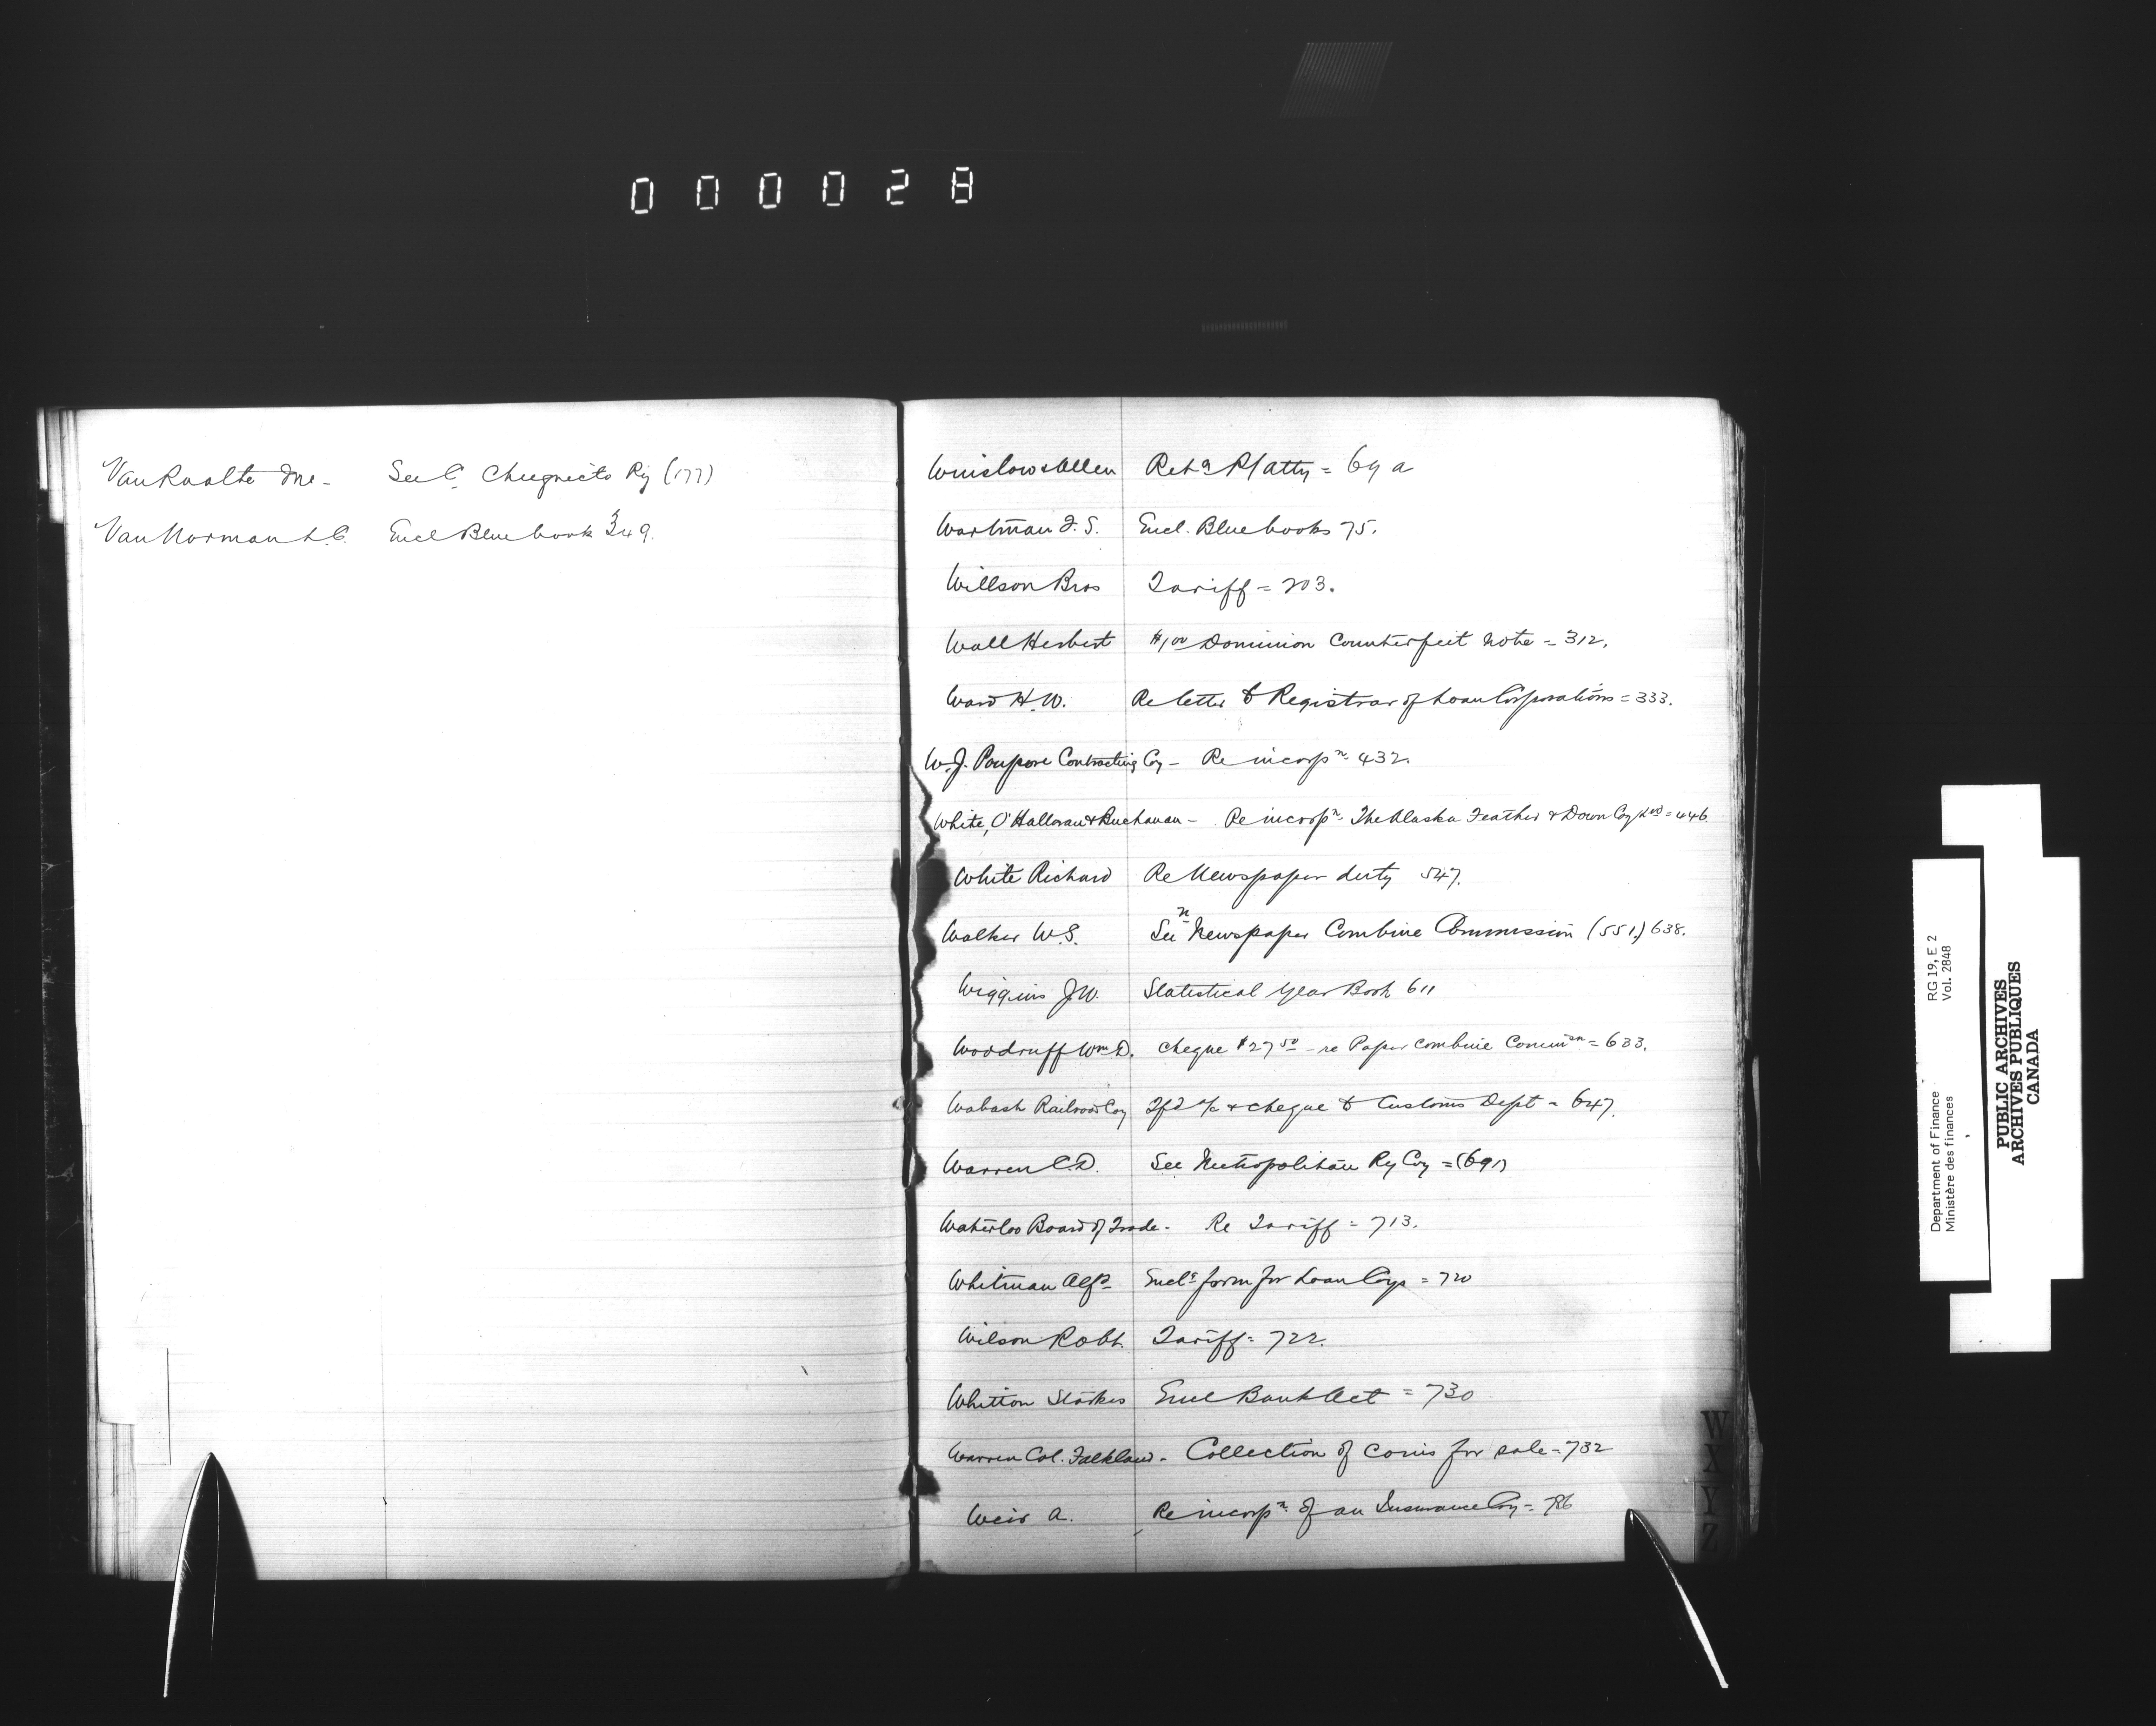 000028
Van Raalte Mr - See C. Chignecto Ry (177)
Van Norman L.C. Encl Blue book 349.
Winslow & Allen Retd P/atty = 69 a
Wartman F.S. Encl. Blue books 75.
Willson Bros Tariff = 203.
Wall Herbert $1,00 Dominion Counterfeit note = 312.
Ward H.W. Re letter to Registrar of Loan Corporations = 333.
W.J. Poupore Contracting Coy - Re incorpn 432.
White, O'Halloran & Buchanan - Re incorpn The Alaska Feather & Down Coy Ltd = 446
White Richard Re Newspaper duty 547.
Walker W.S. See n Newspaper Combine Commission (551.) 638.
Wiggins J.W. Statistical Year Book 611
Woodruff Wm D. Cheque $27 50 - re Paper combine Commisn = 633.
Wabash Railroad Coy Tfd a/c & cheque to Customs Dept = 647.
Warren C.D. See Metropolitan Ry Coy = (691)
Waterloo Board of Trade - Re Tariff = 713.
Whitman Alfd Encl form for Loan Coys = 720
Wilson Robt. Tariff = 722.
Whitton Starkes Encl Bank Act = 730
Warren Col. Falkland - Collection of coins for sale = 732
Weir A. Re incorpn of an Insurance Coy = 786
W
X
Y
Z
Department of Finance RG 19, E 2
Ministère des finances Vol. 2848
PUBLIC ARCHIVES
ARCHIVES PUBLIQUES
CANADA